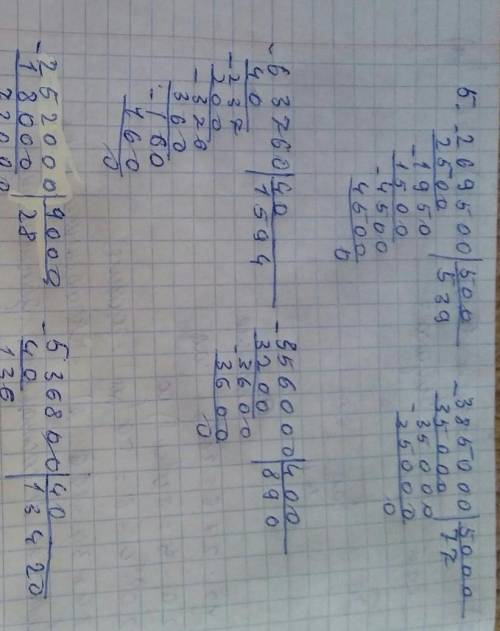 5. -269500|500
2500|539
-1950
1500
-4500
4500
0
-385000|5000
35000|77
-35000
35000
0
-63760|40
40|1594
-237
200
360
-160
0
-356000|400
3200|890
-3600
3600
0
-252000|9000
18000|28
-536800|40
40|13420
136